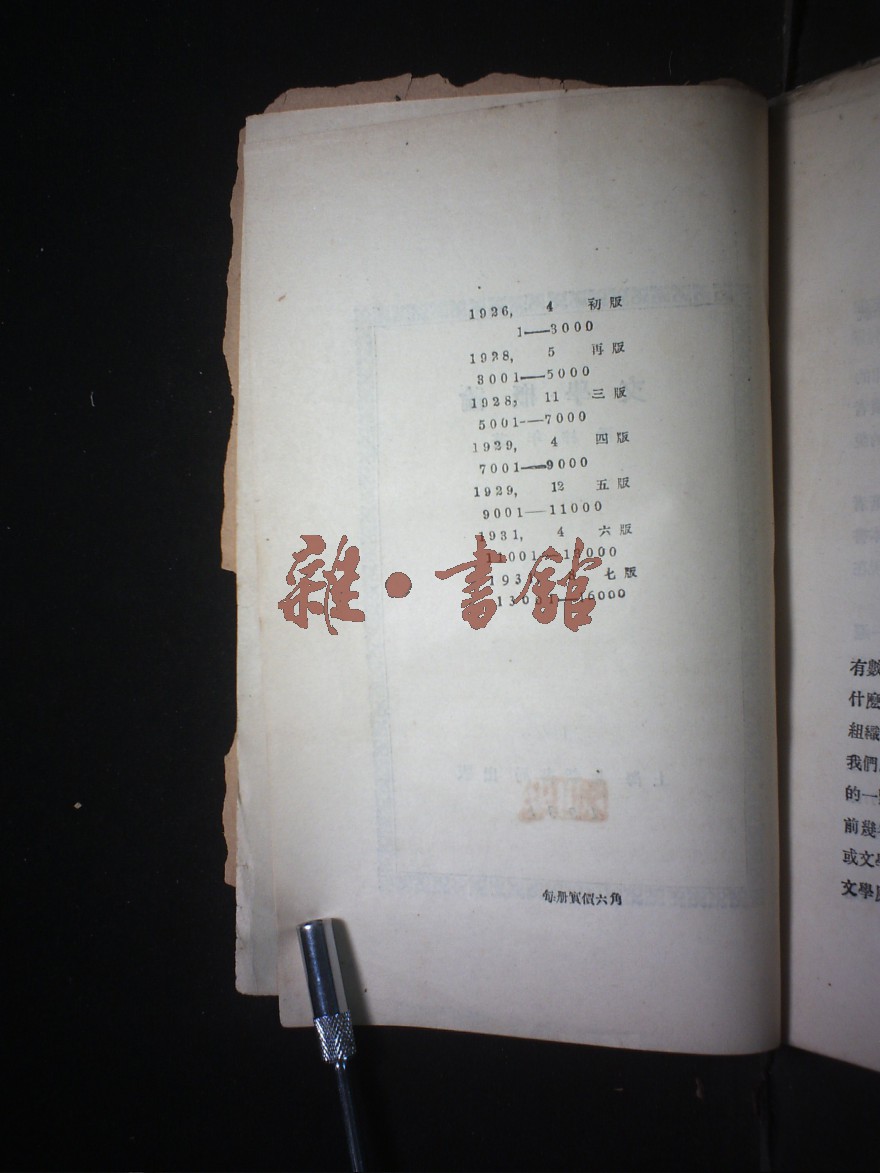 1926, 4 初版
1——3000
1928, 5 再版
3001——5000
1928, 11 三版
5001——7000
1929, 4 四版
7001——9000
1929, 12 五版
9001——11000
1931, 4 六版
11001——13000
193 七版
13001——16000
雜·書館
每册實價六角
有數
什麼
組織
我們
的一
前幾
或文學
文學